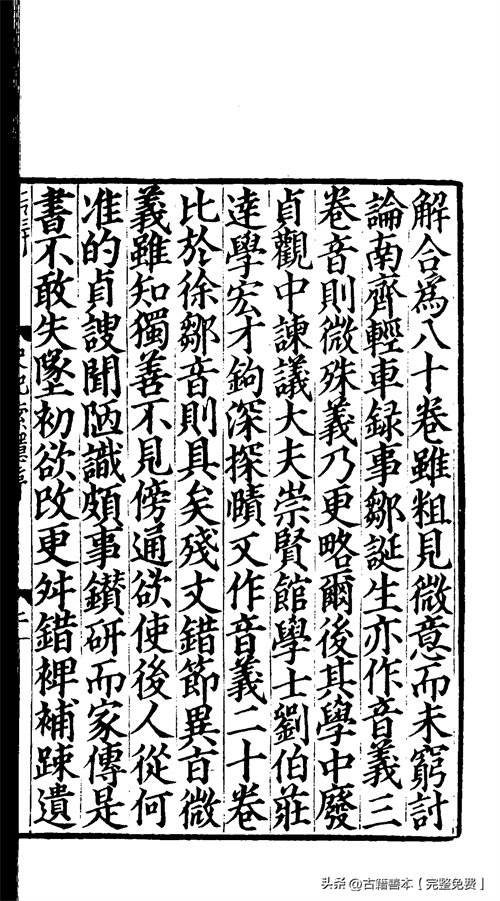 解合爲八十卷雖粗見微意而未窮討
論南齊輕車録事鄒誕生亦作音義三
卷音則微殊義乃更略爾後其學中廢
貞觀中諫議大夫崇賢館學士劉伯莊
達學宏才鉤深探賾又作音義二十卷
比於徐鄒音則具矣殘文錯節異百微
義雖知獨善不見傍通欲使後人從何
准的貞謏聞陋識頗事鑚研而家傳是
書不敢失墜初欲改更舛錯裨補踈遺
頭条@古籍善本【完整免费】